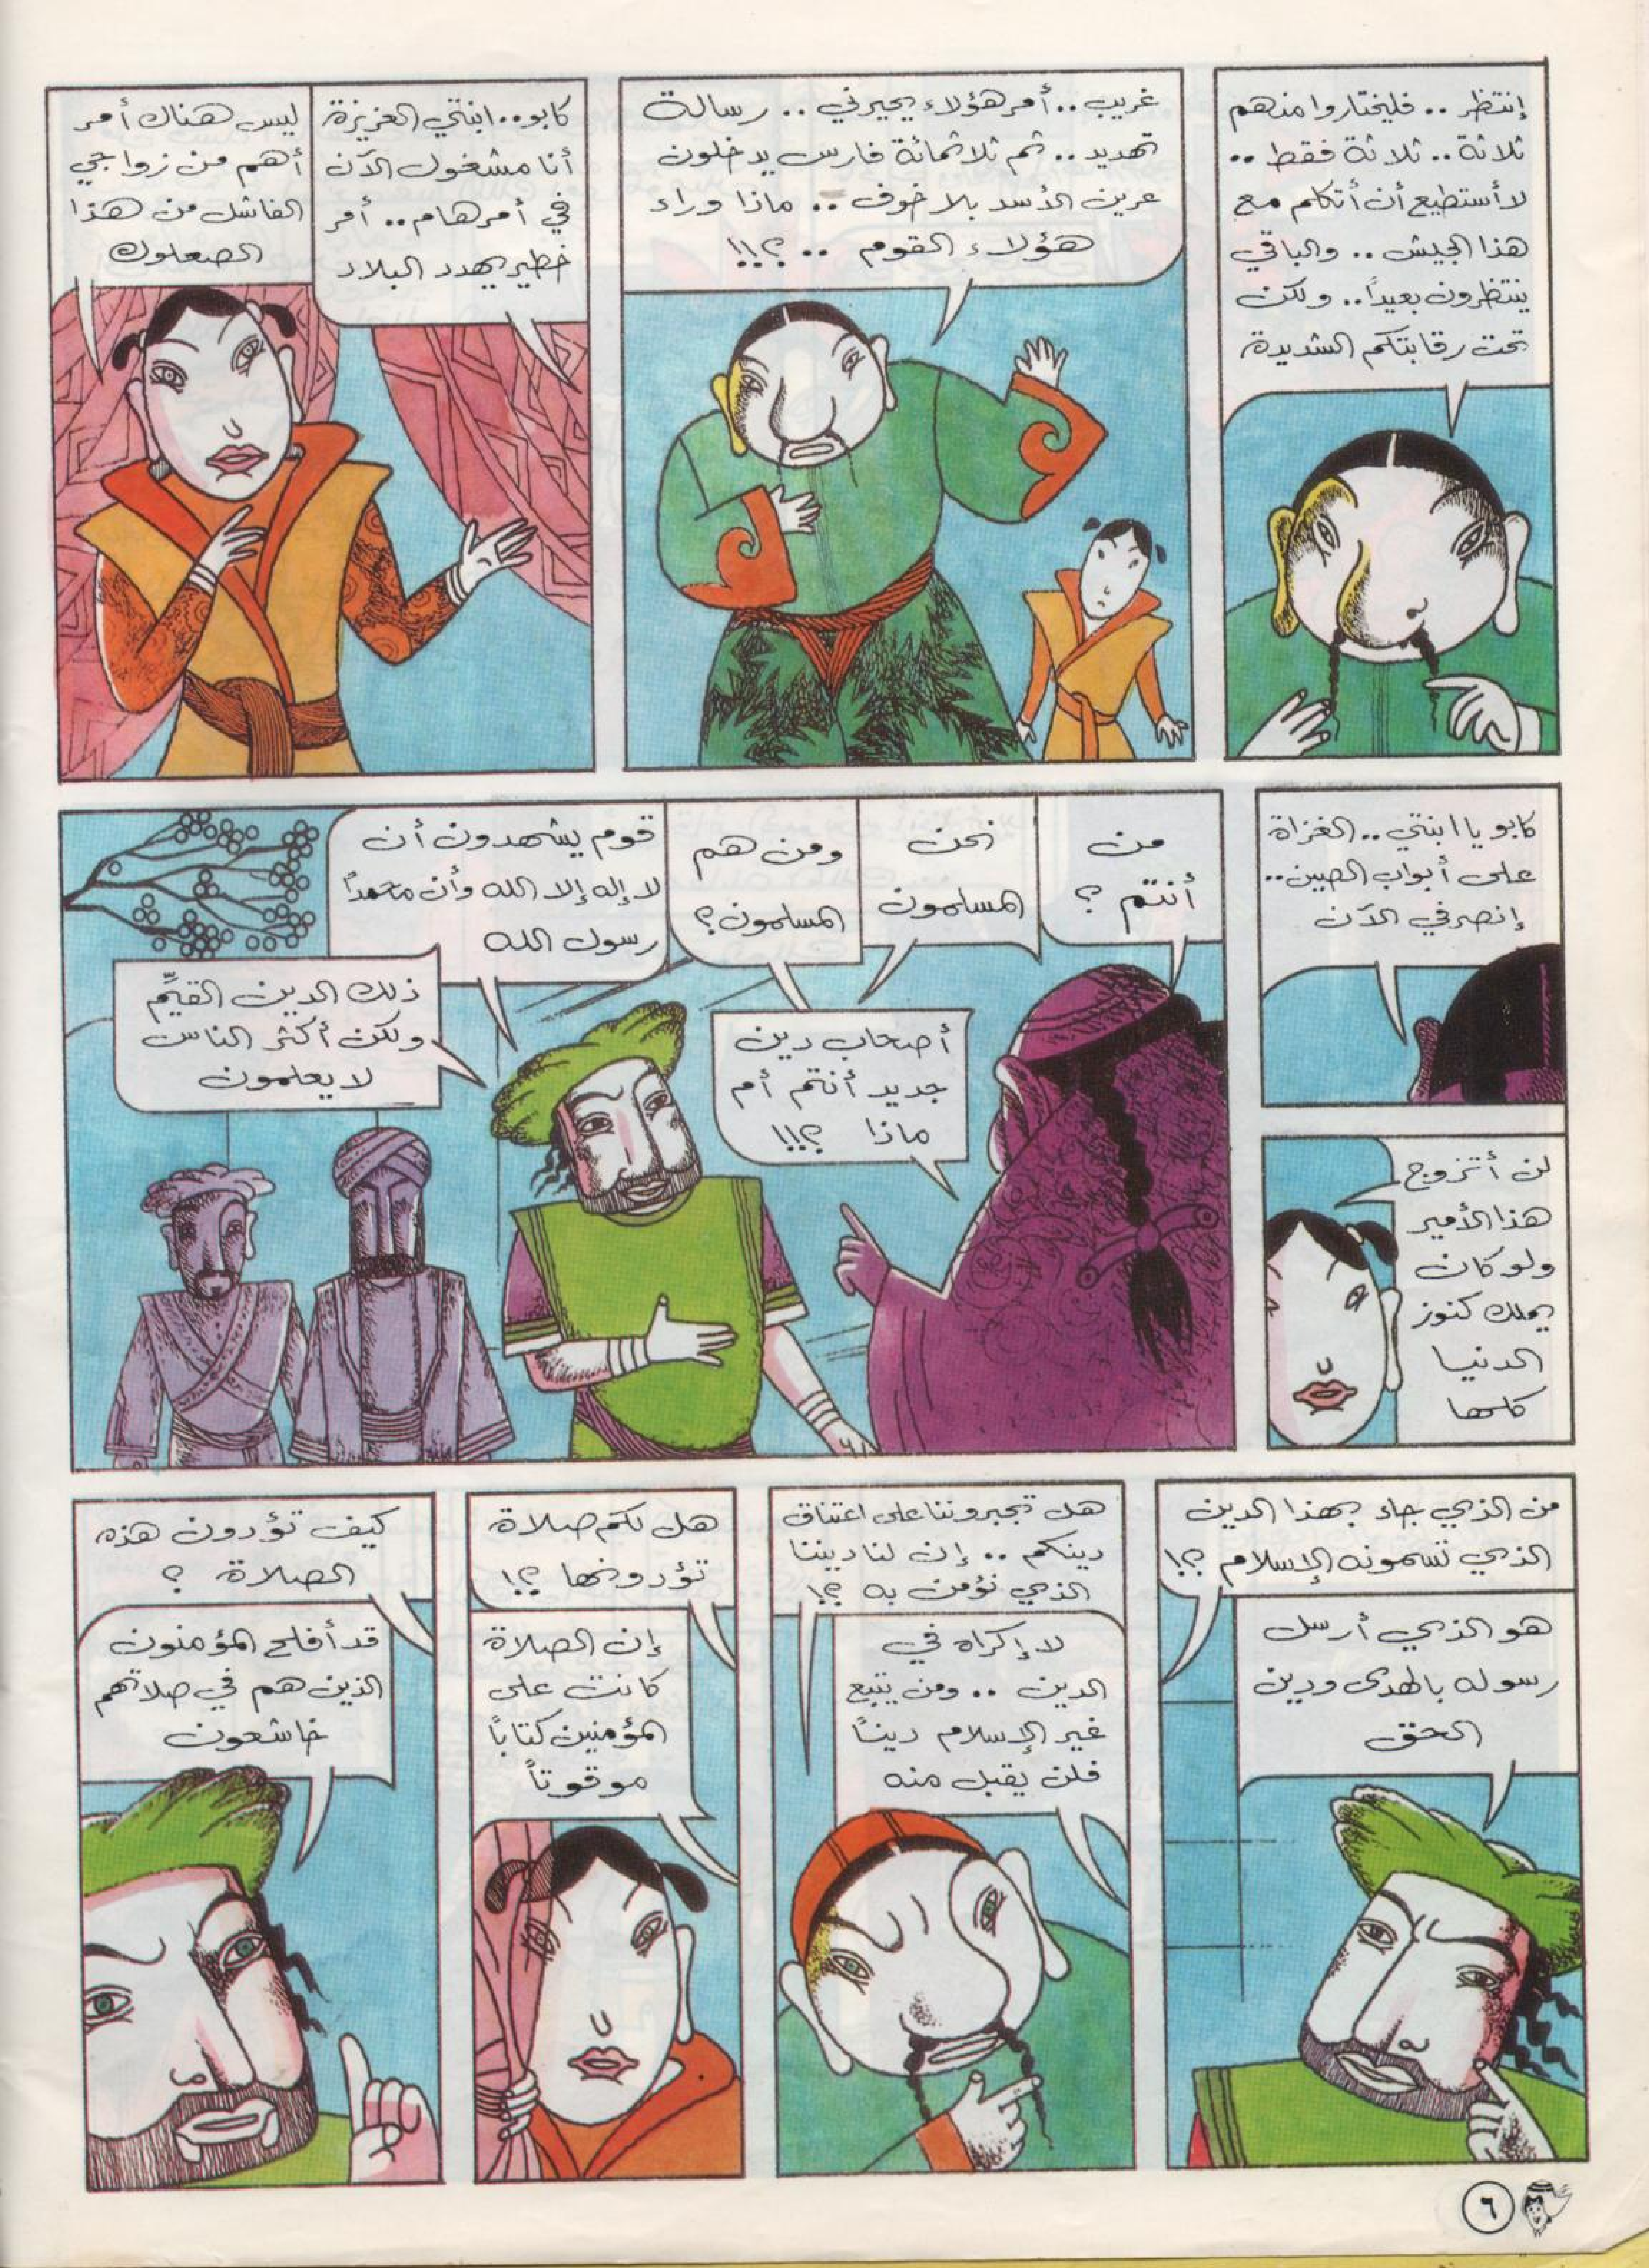 إنتظر .. فليختاروا منهم
ثلاثة .. ثلاثة فقط ..
لا أستطيع أن أتكلم مع
هذا الجيش .. والباقي
ينتظرون بعيداً .. ولكن
تحت رقابتكم الشديدة
غريب .. أمر هؤلاء يحيرني .. رسالة
تهديد .. ثم ثلاثمائة فارس يدخلون
عرين الأسد بلا خوف .. ماذا وراء
هؤلاء القوم .. ؟!!
كابو .. ابنتي العزيزة
أنا مشغول الآن
في أمر هام .. أمر
خطير يهدد البلاد
ليس هناك أمر
أهم من زواجي
الفاشل من هذا
الصعلوك
كابو يا ابنتي .. الغزاة
على أبواب الصين ..
إنصرفي الآن
لن أتزوج
هذا الأمير
ولو كان
يملك كنوز
الدنيا
كلها
من
أنتم ؟
نحن
المسلمون
ومن هم
المسلمون ؟
قوم يشهدون أن
لا إله إلا الله وأن محمداً
رسول الله
أصحاب دين
جديد أنتم أم
ماذا ؟!!
ذلك الدين القيِّم
ولكن أكثر الناس
لا يعلمون
من الذي جاء بهذا الدين
الذي تسمونه الإسلام ؟!
هو الذي أرسل
رسوله بالهدى ودين
الحق
هل تجبروننا على اعتناق
دينكم .. إن لنا ديننا
الذي نؤمن به ؟!
لا إكراه في
الدين .. ومن يتبع
غير الإسلام ديناً
فلن يقبل منه
هل لكم صلاة
تؤدونها ؟!
إن الصلاة
كانت على
المؤمنين كتاباً
موقوتاً
كيف تؤدون هذه
الصلاة ؟
قد أفلح المؤمنون
الذين هم في صلاتهم
خاشعون
٦